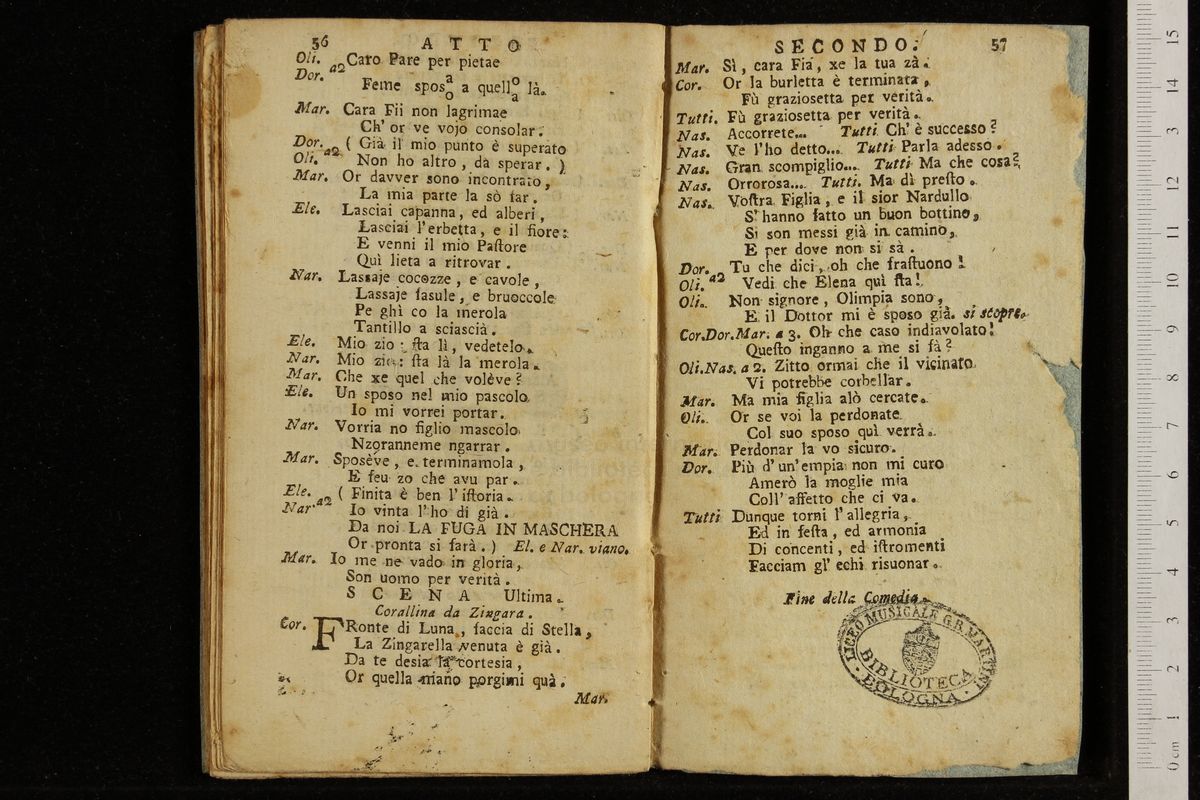 56 ATTO
Oli. Dor. a2 Caro Pare per pietae
Feme sposao a quelloa là.
Mar. Cara Fii non lagrimae
Ch' or ve vojo consolar.
Dor. Oli. a2 ( Già il mio punto è superato
Non ho altro, da sperar. )
Mar. Or davver sono incontrato,
La mia parte la sò far.
Ele. Lasciai capanna, ed alberi,
Lasciai l'erbetta, e il fiore:
E venni il mio Paſtore
Quì lieta a ritrovar.
Nar. Lassaje cocozze, e cavole,
Lassaje fasule, e bruoccole
Pe ghì co la merola
Tantillo a sciascià.
Ele. Mio zio: ſta lì, vedetelo.
Nar. Mio zio: ſta là la merola.
Mar. Che xe quel che volève?
Ele. Un sposo nel mio pascolo
Io mi vorrei portar.
Nar. Vorria no figlio mascolo
Nzoranneme ngarrar.
Mar. Sposève, e terminamola,
E feu zo che avu par.
Ele. Nar. a2 ( Finita è ben l'iſtoria.
Io vinta l'ho di già.
Da noi LA FUGA IN MASCHERA
Or pronta si farà. ) El. e Nar. viano.
Mar. Io me ne vado in gloria,
Son uomo per verità.
SCENA Ultima.
Corallina da Zingara.
Cor. FRonte di Luna, faccia di Stella,
La Zingarella venuta è già.
Da te desia la cortesia,
Or quella mano porgimi quà.
Mar.
SECONDO. 57
Mar. Sì, cara Fia, xe la tua zà.
Cor. Or la burletta è terminata,
Fù graziosetta per verità.
Tutti. Fù graziosetta per verità.
Nas. Accorrete... Tutti Ch' è successo?
Nas. Ve l'ho detto... Tutti Parla adesso.
Nas. Gran scompiglio... Tutti Ma che cosa?
Nas. Orrorosa... Tutti. Ma dì preſto.
Nas. Voſtra Figlia, e il sior Nardullo
S' hanno fatto un buon bottino,
Si son messi già in camino,
E per dove non si sà.
Dor. Oli. a2 Tu che dici, oh che fraſtuono!
Vedi che Elena quì ſta!
Oli. Non signore, Olimpia sono,
E il Dottor mi è sposo già. si scopre.
Cor.Dor.Mar. a 3. Oh che caso indiavolato!
Queſto inganno a me si fà?
Oli.Nas. a 2. Zitto ormai che il vicinato
Vi potrebbe corbellar.
Mar. Ma mia figlia alò cercate.
Oli. Or se voi la perdonate
Col suo sposo quì verrà.
Mar. Perdonar la vo sicuro.
Dor. Più d'un'empia non mi curo
Amerò la moglie mia
Coll' affetto che ci va.
Tutti Dunque torni l'allegria,
Ed in feſta, ed armonia
Di concenti, ed iſtromenti
Facciam gl' echi risuonar.
Fine della Comedia.
LICEO MUSICALE G.B. MARTINI
BIBLIOTECA
BOLOGNA
0 cm 1 2 3 4 5 6 7 8 9 10 11 12 13 14 15